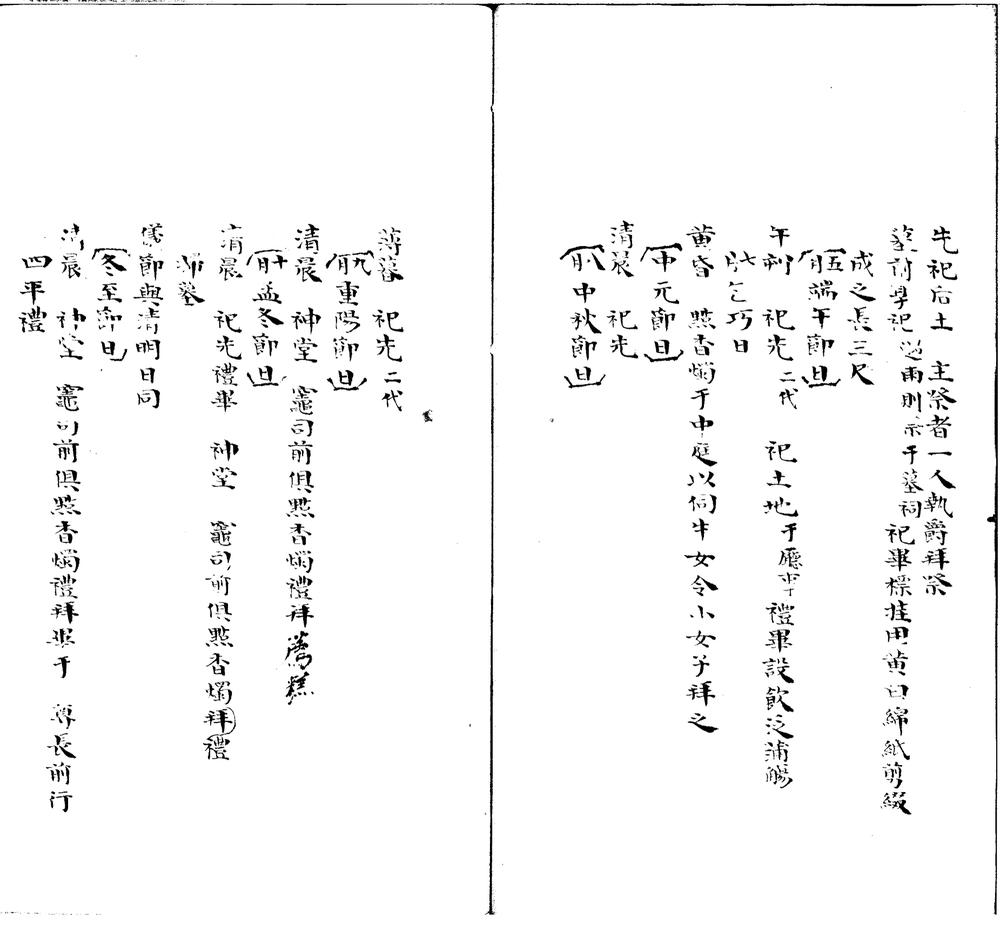 先祀后土　主祭者一人執爵拜祭
墓前學祀遇雨則祭于墓祠祀畢標挂用黄白綿紙剪綴
成之長三尺
五月端午節日
午刻　祀先二代　祀土地于廳事禮畢設飲泛蒲觴
七月乞巧日
黄昏　㸃香燭于中庭以伺牛女令小女子拜之
中元節日
清晨　祀先
八月中秋節日
薄暮　祀先二代
九月重陽節日
清晨　神堂　竈司前俱㸃香燭禮拜薦糕
十月孟冬節日
清晨　祀先禮畢　神堂　竈司前俱㸃香燭拜禮
掃墓
儀節與清明日同
冬至節日
清晨　神堂　竈司前俱㸃香燭禮拜畢于　尊長前行
四平禮